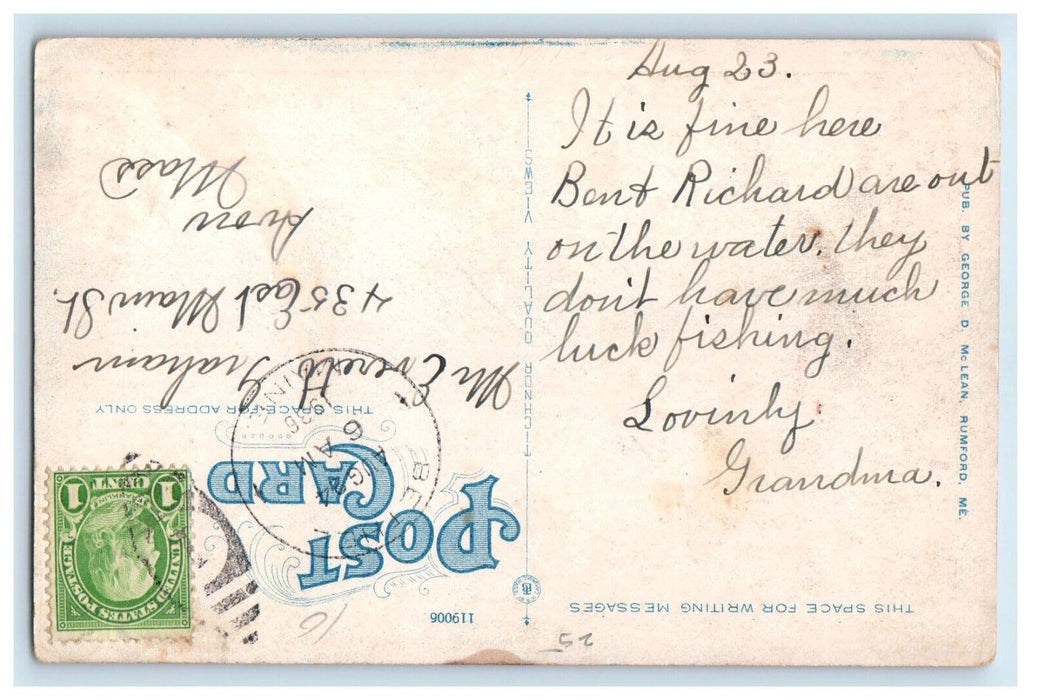 Aug 23.
It is fine here
Bent Richard are out
on the water. they
don't have much
luck fishing.
Lovinly
Grandma.
PUB. BY GEORGE D. McLEAN, RUMFORD, ME.
TICHNOR QUALITY VIEWS
THIS SPACE FOR WRITING MESSAGES
119006
POST
CARD
THIS SPACE FOR ADDRESS ONLY
Mr Everett Graham
435 East Main St.
Avon
Mass
AUG 24
6 AM
1936
UNITED STATES POSTAGE
FRANKLIN
1 CENT 1
10
25